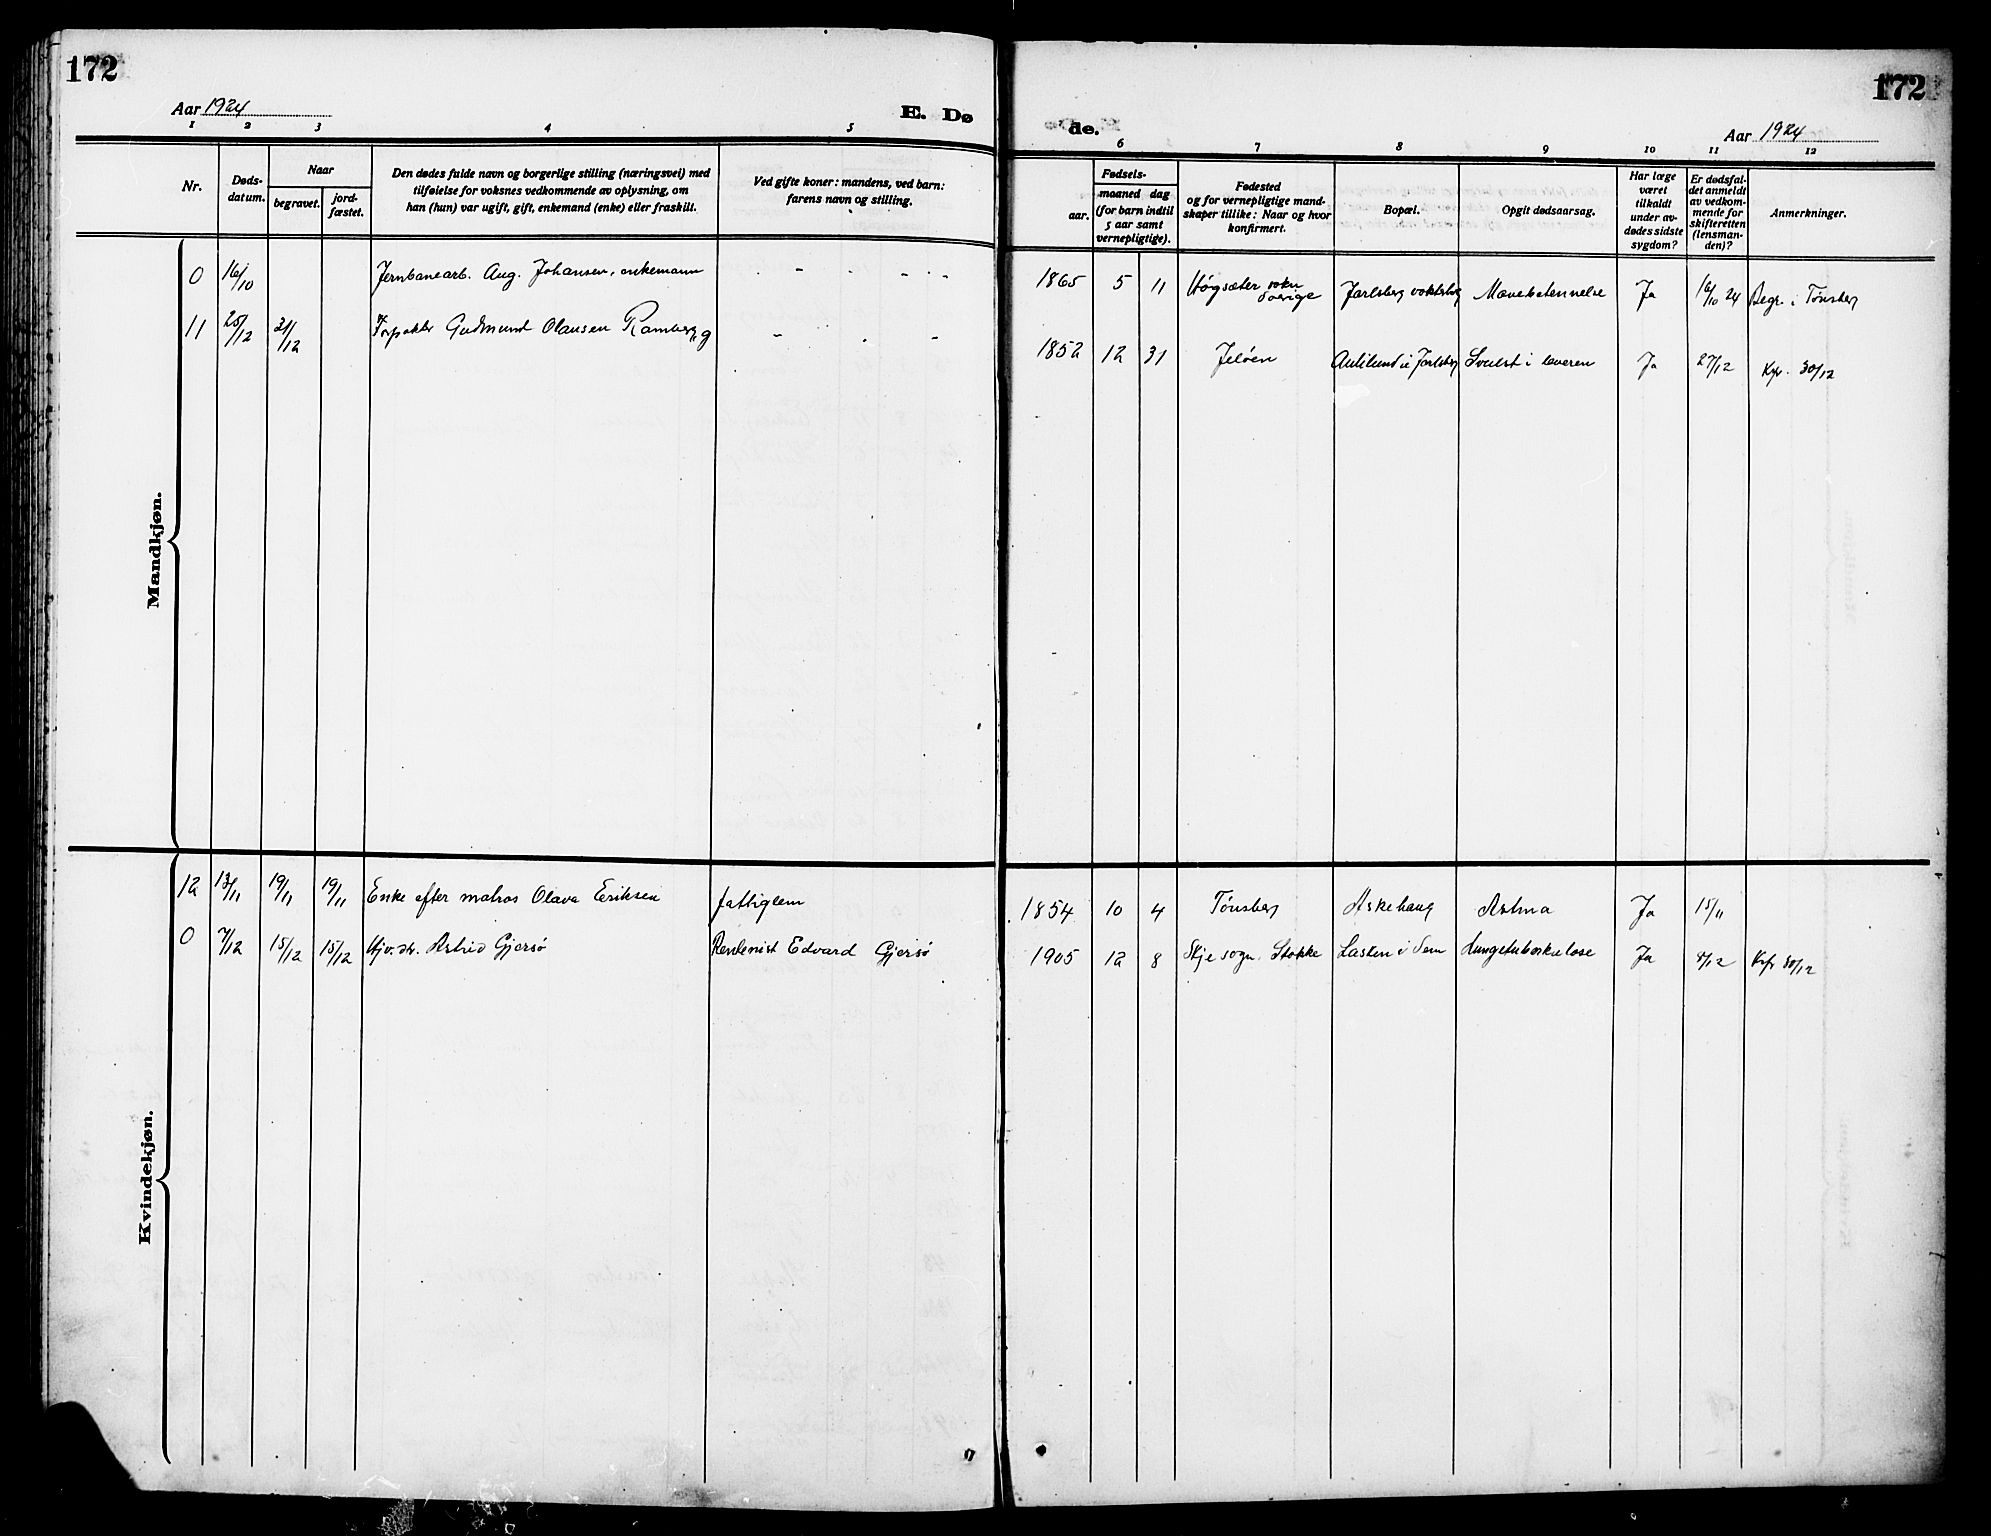 172
Aar 1924
E. Dø
1 2 3 4 5
Nr.
Døds-
datum.
Naar
begravet.
jord-
fæstet.
Den dødes fulde navn og borgerlige stilling (næringsvei) med
tilføielse for voksnes vedkommende av oplysning, om
han (hun) var ugift, gift, enkemand (enke) eller fraskilt.
Ved gifte koner: mandens, ved barn:
farens navn og stilling.
Mandkjøn.
0 16/10 Jernbanearb. Aug. Johansen, enkemann - - -
11 25/12 31/12 Gudmund Olausen Ramberg - -
Kvindekjøn.
12 13/11 19/11 19/11 Enke efter matros Olava Eriksen fattiglem
0 7/12 15/12 15/12 Astrid Gjersø Rentenist Edvard Gjersø
172
de.
Aar 1924
6 7 8 9 10 11 12
Fødsels-
aar.
maaned dag
(for barn indtil
5 aar samt
vernepligtige).
Fødested
og for vernepligtige mand-
skaper tillike: Naar og hvor
konfirmert.
Bopæl.
Opgit dødsaarsag.
Har læge
været
tilkaldt
under av-
dødes sidste
sygdom?
Er dødsfal-
det anmeldt
av vedkom-
mende for
skifteretten
(lensman-
den)?
Anmerkninger.
1865 5 11 Högsæter sokn Sverige Jarlsberg Mavebetennelse Ja 16/10 24 Begr. i Tønsberg
1852 12 31 Jeløen Aulilund i Jarlsberg Svulst i leveren Ja 27/12 Kgr. 30/12
1854 10 4 Tønsberg Askehaug Astma Ja 15/11
1905 12 8 Skje sogn. Stokke Lasten i Sem Lungetuberkulose Ja 8/12 30/12